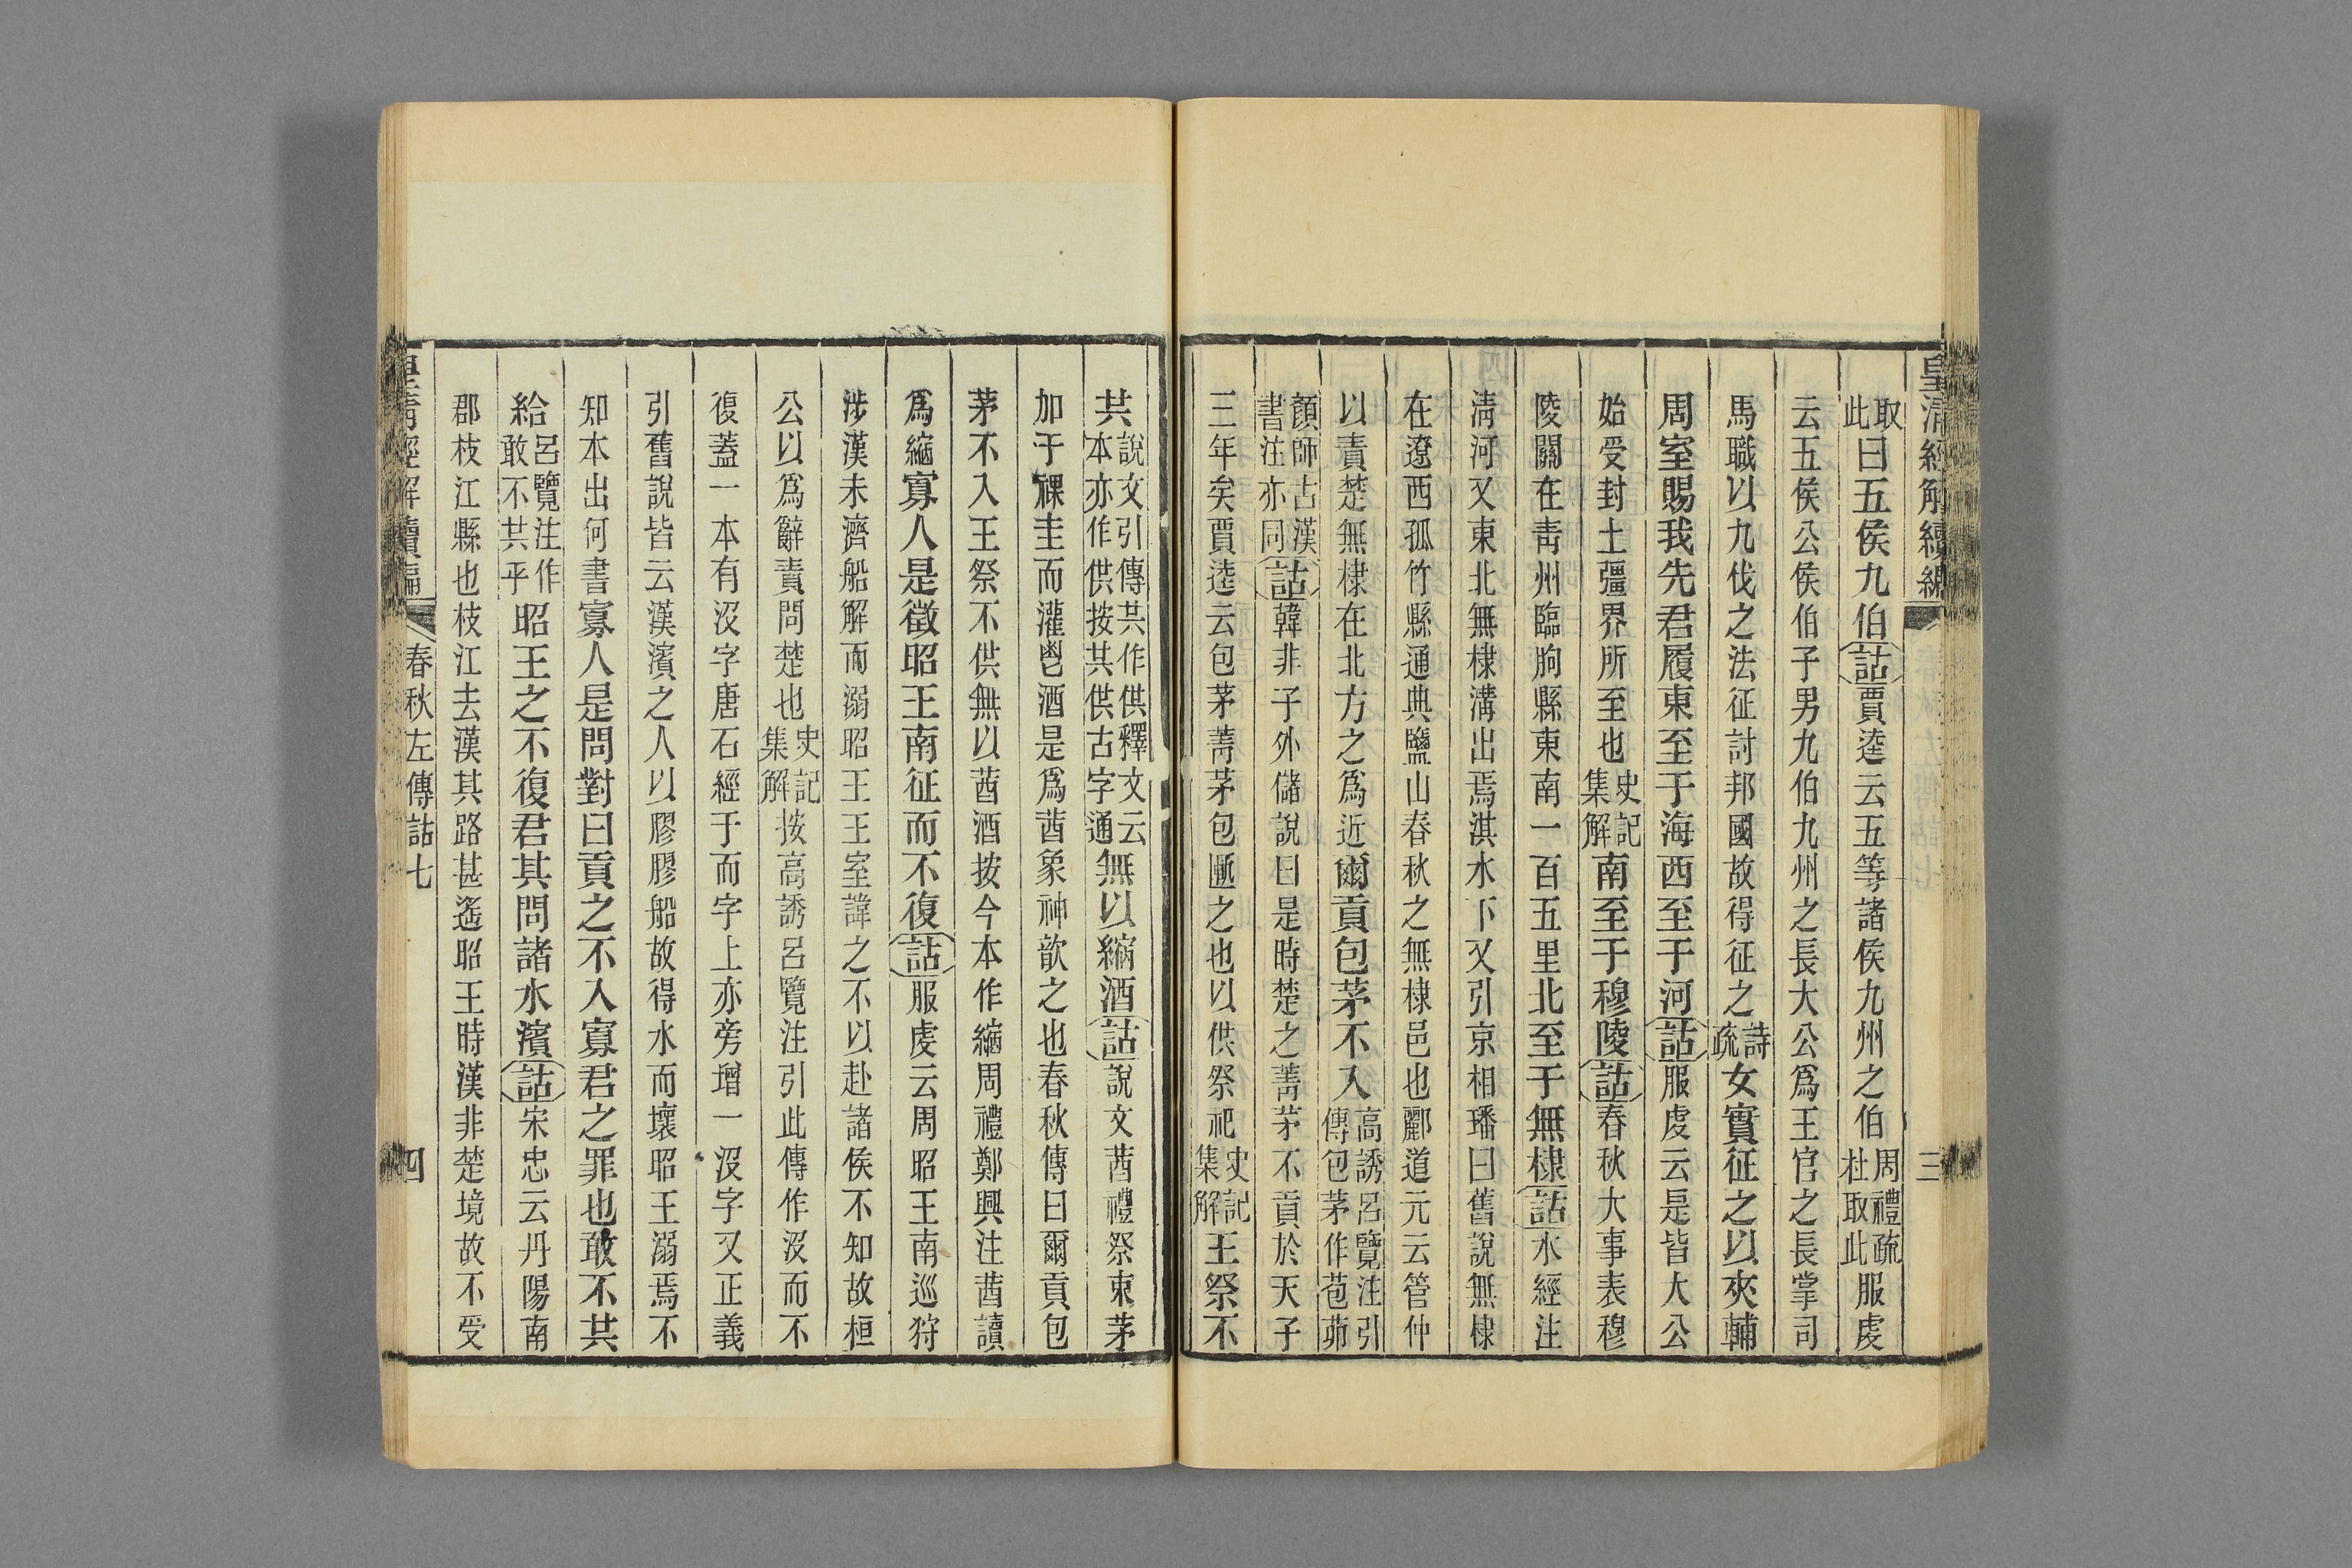 皇清經解續編
三
取此曰五侯九伯詁賈逵云五等諸侯九州之伯周禮疏杜取此服虔
云五侯公侯伯子男九伯九州之長大公爲王官之長掌司
馬職以九伐之法征討邦國故得征之詩疏女實征之以夾輔
周室賜我先君履東至于海西至于河詁服虔云是皆大公
始受封土疆界所至也史記集解南至于穆陵詁春秋大事表穆
陵關在靑州臨朐縣東南一百五里北至于無棣詁水經注
淸河又東北無棣溝出焉淇水下又引京相璠曰舊說無棣
在遼西孤竹縣通典鹽山春秋之無棣邑也酈道元云管仲
以責楚無棣在北方之爲近爾貢包茅不入高誘呂覽注引傳包茅作苞茆
顏師古漢書注亦同詁韓非子外儲說曰是時楚之菁茅不貢於天子
三年矣賈逵云包茅菁茅包匭之也以供祭祀史記集解王祭不
共說文引傳共作供釋文云本亦作供按共供古字通無以縮酒詁說文茜禮祭束茅
加于祼圭而灌鬯酒是爲茜象神歆之也春秋傳曰爾貢包
茅不入王祭不供無以茜酒按今本作縮周禮鄭興注茜讀
爲縮寡人是徵昭王南征而不復詁服虔云周昭王南巡狩
涉漢未濟船解而溺昭王王室諱之不以赴諸侯不知故桓
公以爲辭責問楚也史記集解按高誘呂覽注引此傳作没而不
復蓋一本有没字唐石經于而字上亦旁增一没字又正義
引舊說皆云漢濱之人以膠膠船故得水而壞昭王溺焉不
知本出何書寡人是問對曰貢之不入寡君之罪也敢不共
給呂覽注作敢不共乎昭王之不復君其問諸水濱詁宋忠云丹陽南
郡枝江縣也枝江去漢其路甚遙昭王時漢非楚境故不受
皇清經解續編
春秋左傳詁七
四